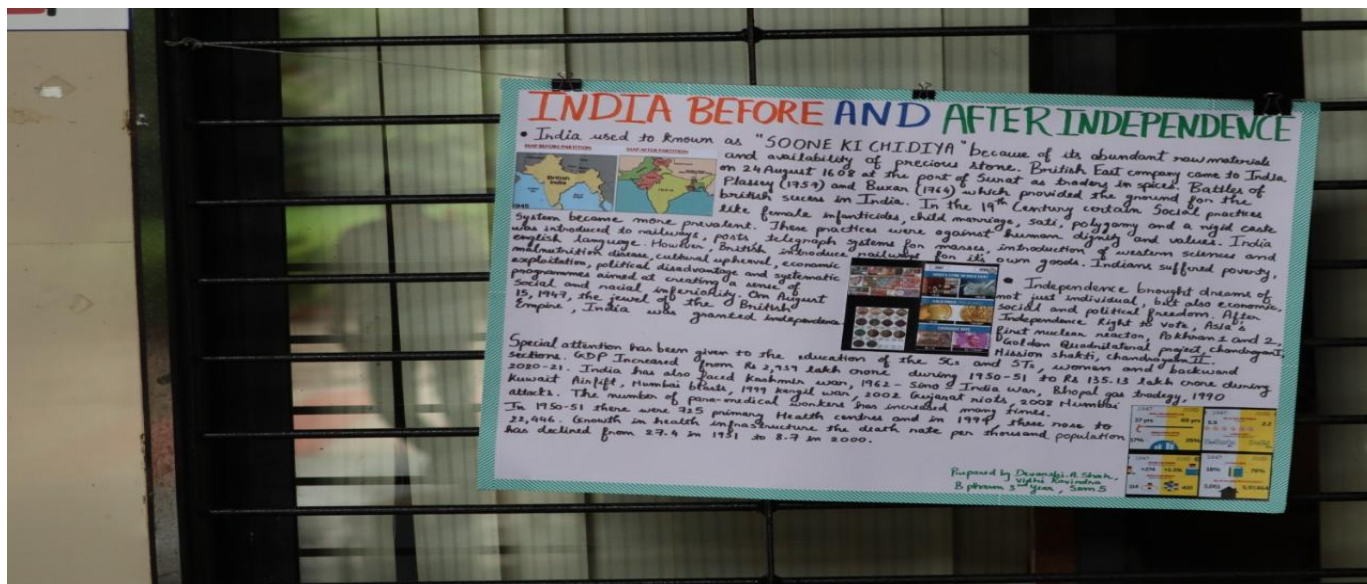 INDIA BEFORE AND AFTER INDEPENDENCE
• India used to known as "SOONE KI CHIDIYA" because of its abundant raw materials
and availability of precious stone. British East company come to India
on 24 August 1608 at the port of Surat as traders in spices. Battles of
Plassey (1757) and Buxar (1764) which provided the ground for the
british sucess in India. In the 19th Century certain Social practices
like female infanticides, child marriage, sati, polygamy and a rigid caste
System became more prevalent. These practices were against human dignity and values. India
was introduced to railways, posts, telegraph systems for masses, introduction of western sciences and
english language. However, British introduce railways for it's own goods. Indians suffered poverty,
malnutrition disease, cultural upheval, economic
exploitation, political disadvantage and systematic
programmes aimed at creating a sense of
social and racial inferiority. On August
15, 1947, the jewel of the British
Empire, India was granted independence
• Independence brought dreams of
not just individual, but also economic,
social and political freedom. After
Independence Right to vote, Asia's
first nuclear reactor, Pokhran 1 and 2,
Golden Quadrilateral project, chandrayan I,
Mission shakti, chandrayan II
Special attention has been given to the education of the SCs and STs, women and backward
sections. GDP Increased from Rs 2,939 lakh crore during 1950-51 to Rs 135.13 lakh crore during
2020-21. India has also faced Kashmir war, 1962 - Sino India war, Bhopal gas tradegy, 1990
Kuwait Airlift, Mumbai blasts, 1999 kargil war, 2002 Gujarat riots, 2008 Mumbai
attacks. The number of para-medical workers has increased many times.
In 1950-51 there were 725 primary Health centres and in 1994, these rose to
22,446. Growth in health infrastructure the death rate per thousand population
has declined from 27.4 in 1951 to 8.7 in 2000.
Prepared by Devanshi. A. Shah,
Vidhi Ravindra
B pharm 3rd year, Sem 5
MAP BEFORE PARTITION
MAP AFTER PARTITION
British
India
1945
India
1947